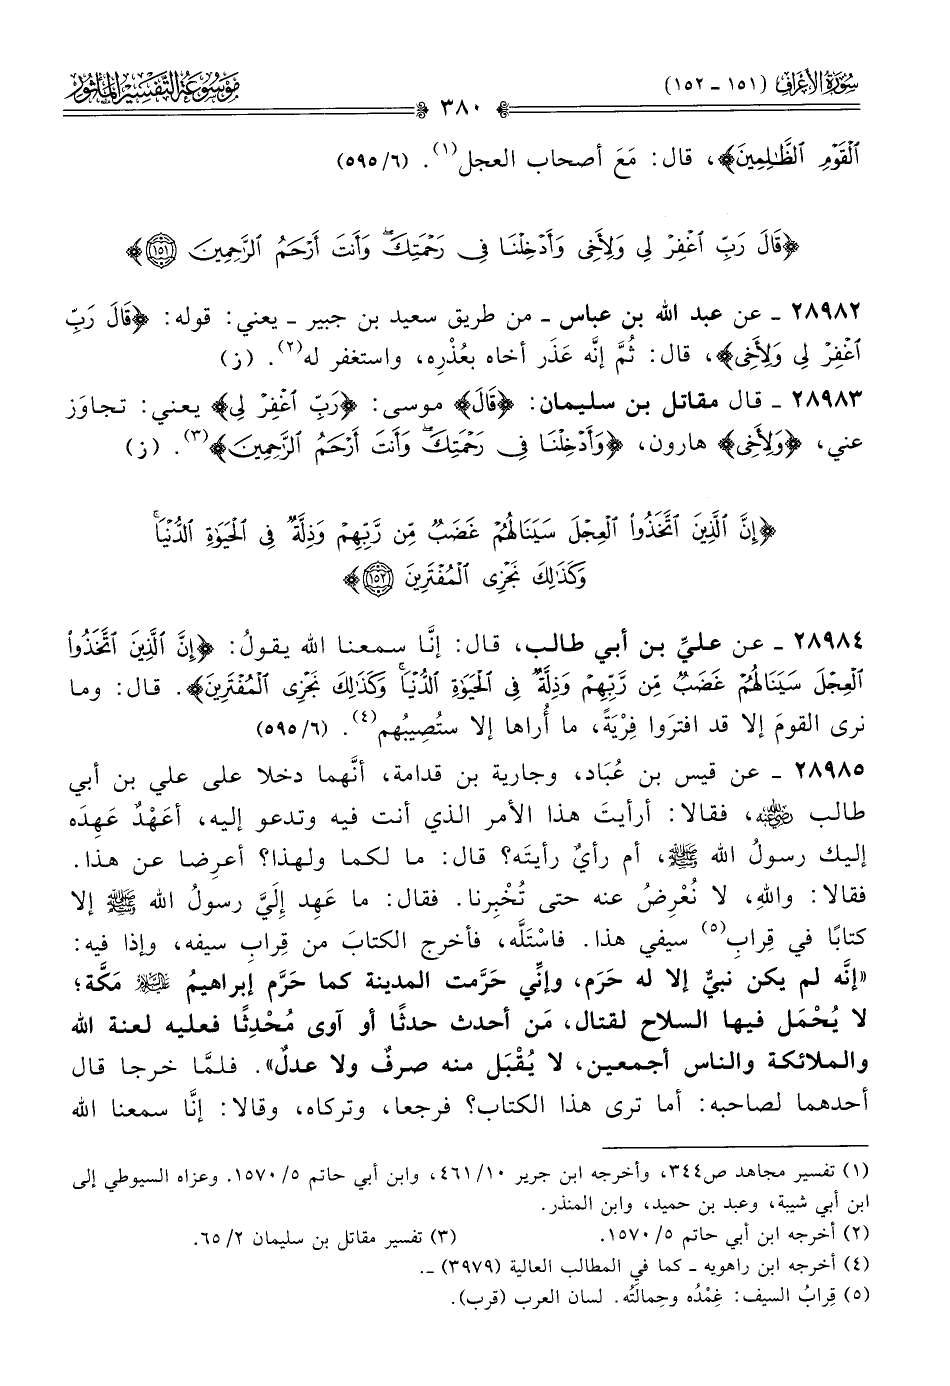 سُورَةُ الأَعْرَافِ (١٥١ - ١٥٢)
٣٨٠
مَوْسُوعَةُ التَّفْسِيرِ المَأْثُور
ٱلْقَوْمِ ٱلظَّٰلِمِينَ﴾، قال: مَعَ أصحاب العجل(١). (٦/ ٥٩٥)
﴿قَالَ رَبِّ ٱغْفِرْ لِى وَلِأَخِى وَأَدْخِلْنَا فِى رَحْمَتِكَ ۖ وَأَنتَ أَرْحَمُ ٱلرَّٰحِمِينَ ١٥١﴾
٢٨٩٨٢ - عن عبد الله بن عباس - من طريق سعيد بن جبير - يعني: قوله: ﴿قَالَ رَبِّ
ٱغْفِرْ لِى وَلِأَخِى﴾، قال: ثُمَّ إنَّه عَذَر أخاه بعُذْرِه، واستغفر له(٢). (ز)
٢٨٩٨٣ - قال مقاتل بن سليمان: ﴿قَالَ﴾ موسى: ﴿رَبِّ ٱغْفِرْ لِى﴾ يعني: تجاوَز
عني، ﴿وَلِأَخِى﴾ هارون، ﴿وَأَدْخِلْنَا فِى رَحْمَتِكَ ۖ وَأَنتَ أَرْحَمُ ٱلرَّٰحِمِينَ﴾(٣). (ز)
﴿إِنَّ ٱلَّذِينَ ٱتَّخَذُوا۟ ٱلْعِجْلَ سَيَنَالُهُمْ غَضَبٌ مِّن رَّبِّهِمْ وَذِلَّةٌ فِى ٱلْحَيَوٰةِ ٱلدُّنْيَا ۚ
وَكَذَٰلِكَ نَجْزِى ٱلْمُفْتَرِينَ ١٥٢﴾
٢٨٩٨٤ - عن عليِّ بن أبي طالب، قال: إنَّا سمعنا الله يقولُ: ﴿إِنَّ ٱلَّذِينَ ٱتَّخَذُوا۟
ٱلْعِجْلَ سَيَنَالُهُمْ غَضَبٌ مِّن رَّبِّهِمْ وَذِلَّةٌ فِى ٱلْحَيَوٰةِ ٱلدُّنْيَا ۚ وَكَذَٰلِكَ نَجْزِى ٱلْمُفْتَرِينَ﴾. قال: وما
نرى القومَ إلا قد افترَوا فِرْيَةً، ما أُراها إلا ستُصِيبُهم(٤). (٦/ ٥٩٥)
٢٨٩٨٥ - عن قيس بن عُبَاد، وجارية بن قدامة، أنَّهما دخلا على علي بن أبي
طالب رضي الله عنه، فقالا: أرأيتَ هذا الأمر الذي أنت فيه وتدعو إليه، أعَهْدٌ عَهِدَه
إليك رسولُ الله ﷺ، أم رأيٌ رأيتَه؟ قال: ما لكما ولهذا؟ أعرِضا عن هذا.
فقالا: واللهِ، لا نُعْرِضُ عنه حتى تُخْبِرنا. فقال: ما عَهِد إلَيَّ رسولُ الله ﷺ إلا
كتابًا في قِرابِ(٥) سيفي هذا. فاسْتَلَّه، فأخرج الكتابَ من قِرابِ سيفه، وإذا فيه:
«إنَّه لم يكن نبيٌّ إلا له حَرَم، وإنِّي حَرَّمت المدينة كما حَرَّم إبراهيمُ عليه السلام مَكَّة؛
لا يُحْمَل فيها السلاح لقتال، مَن أحدث حدثًا أو آوى مُحْدِثًا فعليه لعنة الله
والملائكة والناس أجمعين، لا يُقْبَل منه صرفٌ ولا عدلٌ». فلمَّا خرجا قال
أحدهما لصاحبه: أما ترى هذا الكتاب؟ فرجعا، وتركاه، وقالا: إنَّا سمعنا الله
(١) تفسير مجاهد ص٣٤٤، وأخرجه ابن جرير ١٠/ ٤٦١، وابن أبي حاتم ٥/ ١٥٧٠. وعزاه السيوطي إلى
ابن أبي شيبة، وعبد بن حميد، وابن المنذر.
(٢) أخرجه ابن أبي حاتم ٥/ ١٥٧٠. (٣) تفسير مقاتل بن سليمان ٢/ ٦٥.
(٤) أخرجه ابن راهويه - كما في المطالب العالية (٣٩٧٩) -.
(٥) قِرابُ السيف: غِمْدُه وحِمالَتُه. لسان العرب (قرب).